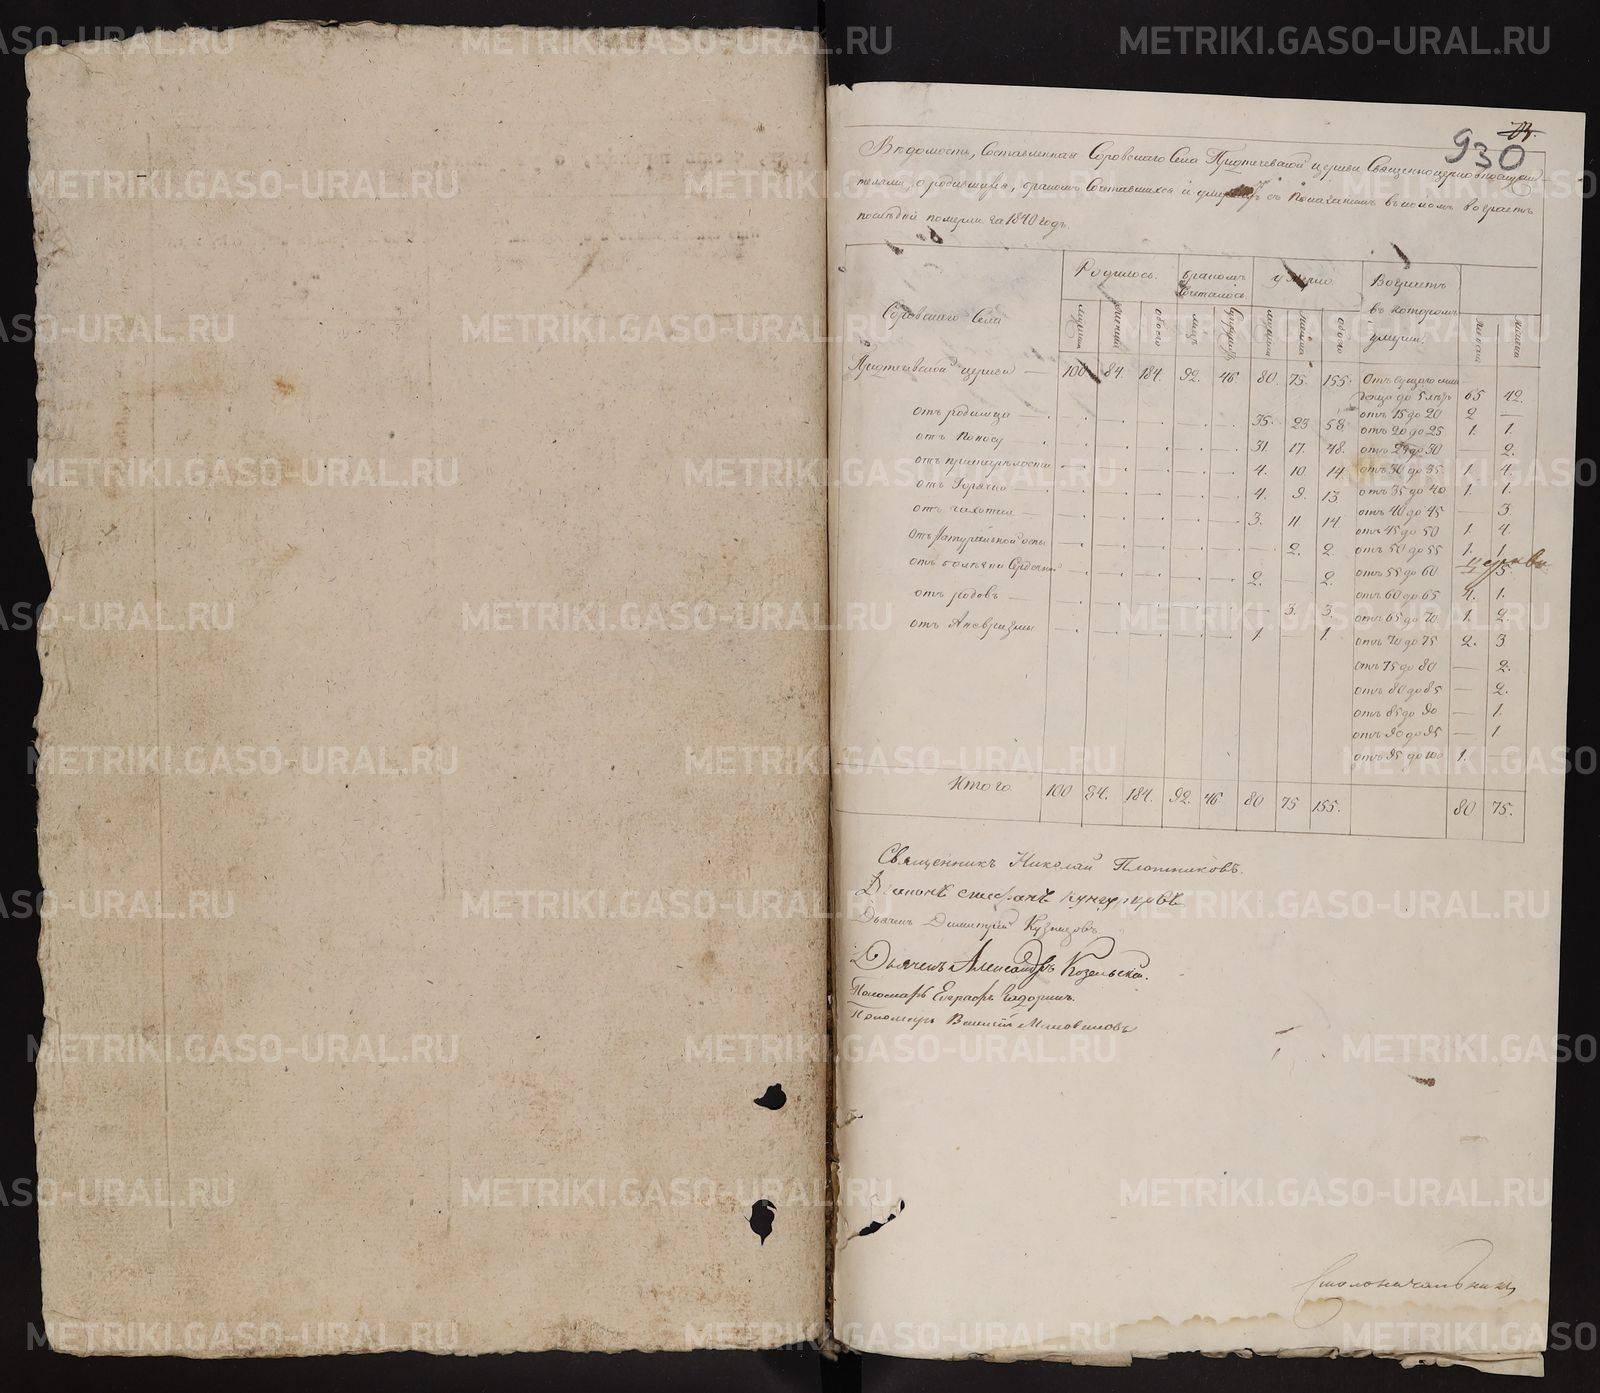 930
Ведомость, Составленная Соровскаго Села Предтечевской церкви Священноцерковнослужи-
телями, о родившихся, браком Сочетавшихся и умерших съ Показанием въ коком возрасте
за 1840 годъ.
Родилось. браком Сочеталось умерло. Возрастъ въ котором умерли.
мужска женска обоего лицъ мужска женска обоего мужска женска
Соровскаго Села
Предтечевской церкви — 100 84. 184. 92. 46. 80. 75. 155.
до 5 летъ 65 42.
отъ родимца — 35. 23 58 отъ 15 до 20 2 —
отъ Поносу 31. 17. 48. отъ 20 до 25 1. 1.
отъ 25 до 30 — 2.
отъ престарелости 4. 10 14 отъ 30 до 35 1. 4.
отъ Горячки — 4. 9. 13 отъ 35 до 40 1. 1.
отъ чахотки — 3. 11 14 отъ 40 до 45 — 3.
отъ 45 до 50 1. 4.
отъ Натуральной оспы — 2. 2 отъ 50 до 55 1. 1.
2. — 2. отъ 55 до 60 5.
отъ родовъ — 3. 3 отъ 60 до 65 4. 1.
отъ 65 до 70 1. 2.
отъ Аневризмы 1. 1. отъ 70 до 75 2. 3
отъ 75 до 80 — 2.
отъ 80 до 85 — 2.
отъ 85 до 90 — 1.
отъ 90 до 95 — 1
отъ 95 до 100 1.
Итого 100 84. 184. 92. 46 80 75 155. 80 75.
Священникъ Николай Плотниковъ.
Диаконъ Стефанъ Кунгуровъ
Дьячекъ Димитрий Кузнецовъ
Дьячекъ Александръ Козельски.
Пономарь Евграфъ
Пономарь Василий
Столоначальникъ
METRIKI.GASO-URAL.RU